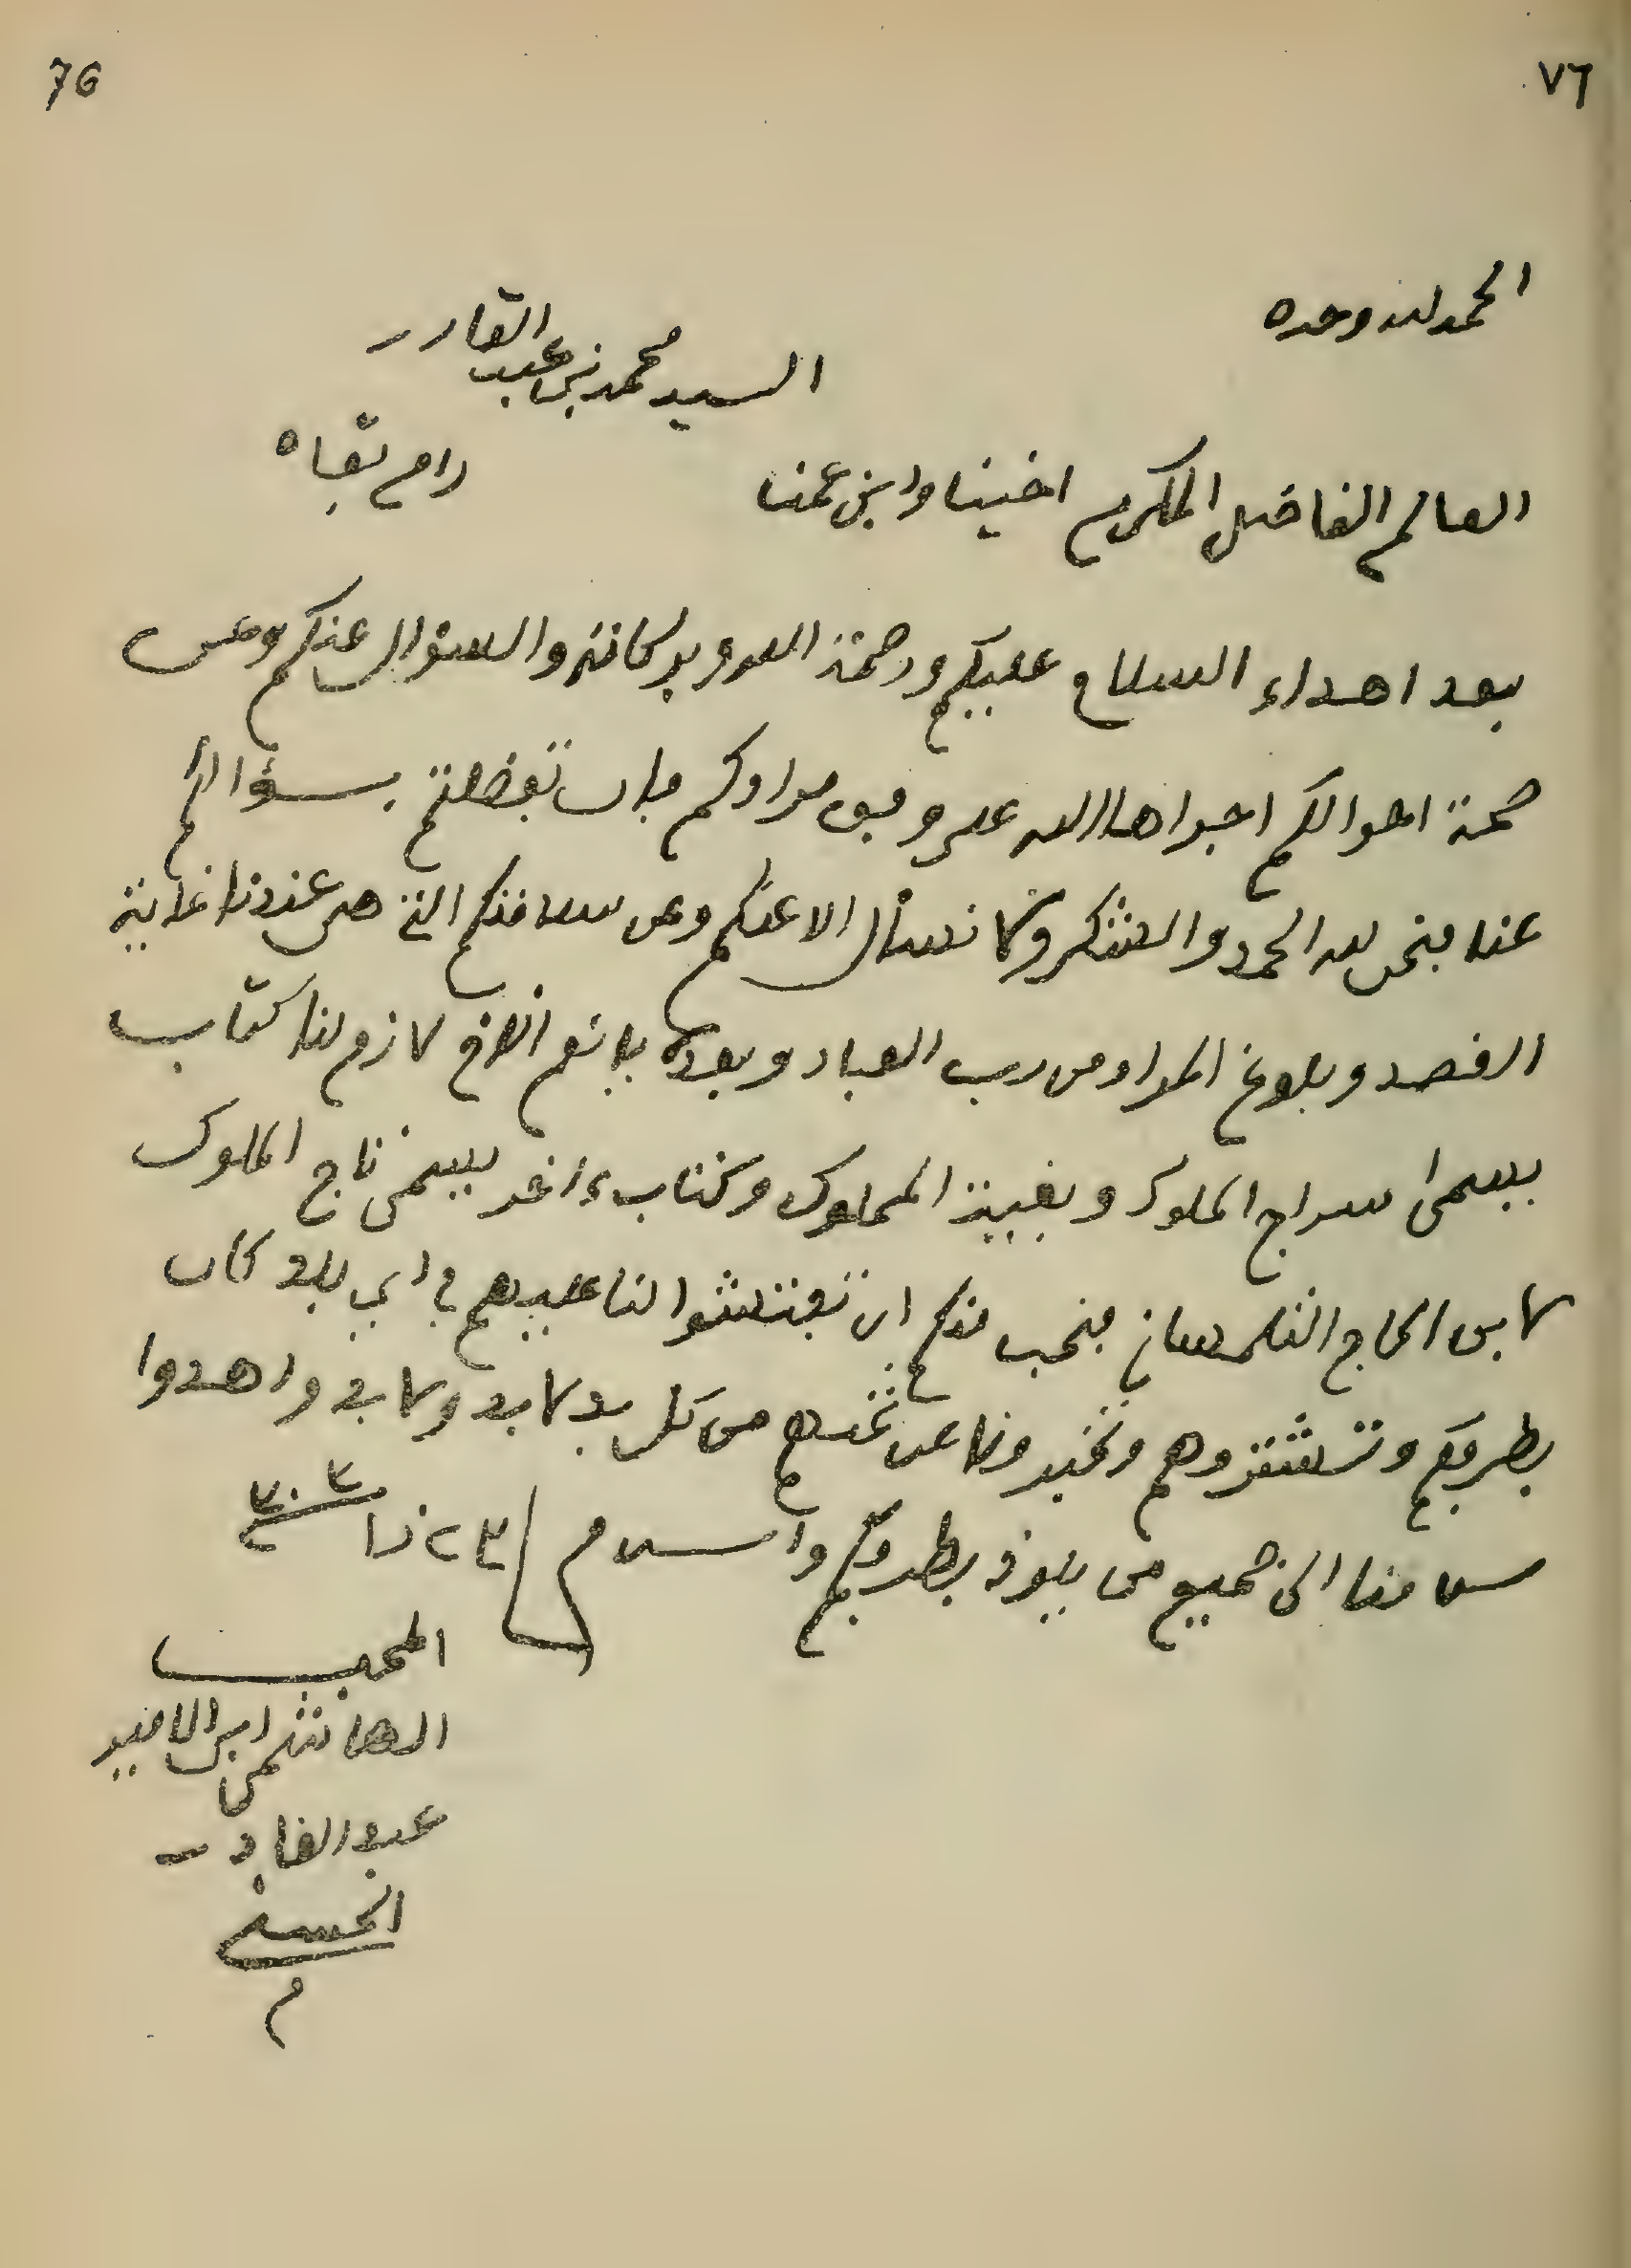 76
٧٦
الحمد لله وحده
السيد محمد بن عبد القادر
العالم الفاضل المكرم اخينا وابن عمنا دام بقاه
بعد اهداء السلام عليكم ورحمة الله وبركاته والسؤال عنكم وعن
صحة احوالكم اجراها الله على وفق مرادكم فان تفضلتم بسؤالكم
عنا فنحن لله الحمد والشكر ولا نسأل الا عنكم وعن سلامتكم التي هي عندنا غاية
القصد وبلوغ المراد من رب العباد وبعده فانهم اخي لازم لنا كتاب
يسمى سراج الملوك وبغية المملوك وكتاب ءاخر يسمى تاج الملوك
لابن الحاج التلمساني فنحب منكم ان تفتشوا لنا عليهم في اي بلد كان
بطرفكم وتشتروهم وتخبرونا عن ثمنهم من كل بد لابد ولابد واهدوا
سلامنا الى جميع من يلوذ بطرفكم والسلام ٢٣ ذا ٣٠٣
المحب
الهاشمي ابن الامير
عبد القادر
الحسني
م